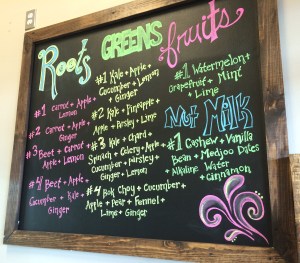 Roots
GREENS
fruits
#1 Carrot + Apple +
Lemon
#2 Carrot + Apple +
Ginger
#3 Beet + Carrot
+ Apple + Lemon
#4 Beet + Apple +
Cucumber + Kale +
Ginger
#1 Kale + Apple +
Cucumber + Lemon
+ Ginger
#2 Kale + Pineapple
+ Apple + Parsley + Lime
#3 Kale + Chard +
Spinach + Celery + Apple +
Cucumber + parsley +
Ginger + Lemon
#4 Bok Choy + Cucumber +
Apple + pear + Fennel +
Lime + Ginger
#1 Watermelon +
Grapefruit + Mint
+ Lime
Nut Milk
#1 Cashew + Vanilla
Bean + Medjool Dates
+ Alkaline Water
+ Cinnamon